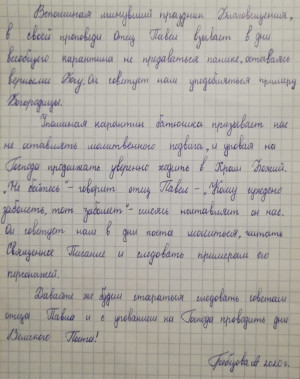 Вспоминая минувший праздник Благовещения,
в своей проповеди Отец Павел взывает в дни
всеобщего карантина не предаваться панике, оставаясь
верными Богу. Он советует нам уподобляться примеру
Богородицы.
Упоминая карантин батюшка призывает нас
не оставлять молитвенного подвига, и уповая на
Господа продолжать уверенно ходить в Храм Божий.
„Не бойтесь" – говорит отец Павел – „Кому суждено
заболеть, тот заболеет" – так наставляет он нас.
Он советует нам в дни поста молиться, читать
Священное Писание и следовать примерам его
персонажей.
Давайте же будем стараться следовать советам
отца Павла и с упованием на Господа проводить дни
Великого Поста!
2020 г.